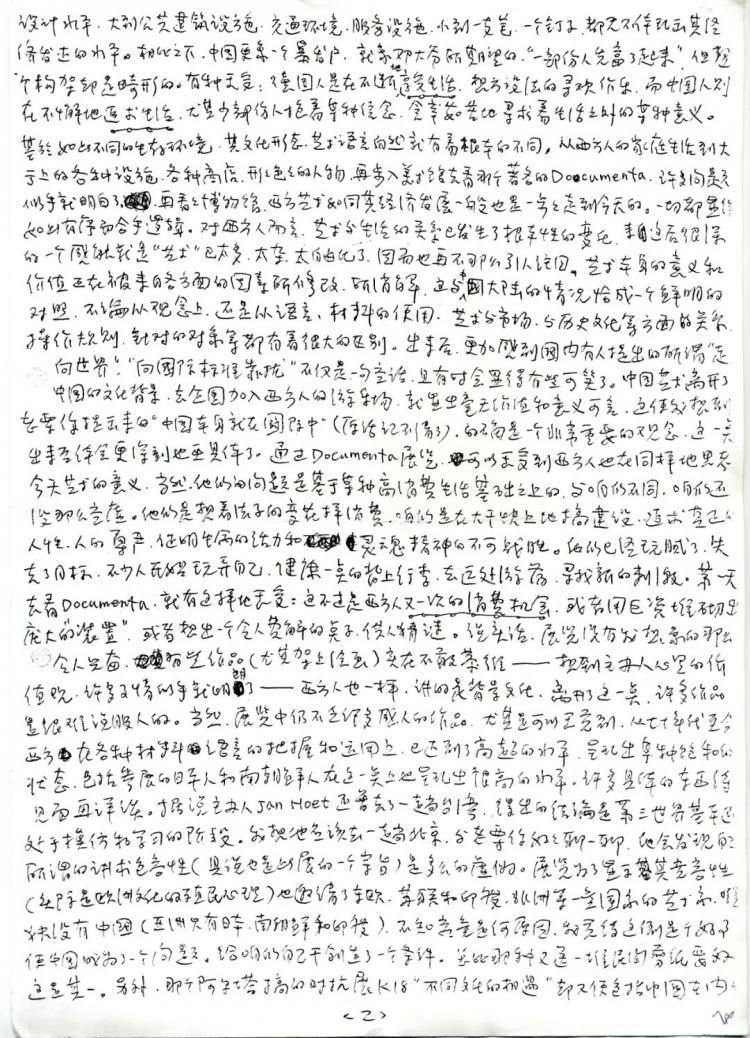 设计水平，大到公共建筑设施，交通环境，服务设施，小到一支笔，一个钉子，都无不体现出其经
济发达的水平。相比之下，中国更象一个暴发户，就象邓大爷所期望的，“一部份人先富了起来”，但整
个构架却是畸形的。有种感觉：德国人是在不断地享受生活，想方设法的寻欢作乐，而中国人则
在不懈地追求生活，尤其少部份人抱着某种信念，含辛茹苦地寻求着生活之外的某种意义。
基于如此不同的生存环境，其文化形态，艺术语言自然就有着根本的不同。从西方人的家庭生活到大
于上的各种设施，各种商店，形形色色的人物，再步入美术馆去看那个著名的Documenta，许多问题
似乎就明白了，再看看博物馆，西方艺术如同其经济发展一般也是一步步走到今天的。一切都显得
如此有序而合乎逻辑。对西方人而言，艺术与生活的关系已发生了根本性的变化，来这后很深
的一个感触就是“艺术”已太多，太杂，太自由化了，因而也再不那么引人注目。艺术本身的意义和
价值正在被来自各方面的因素所修改，所消解，这与中国大陆的情况恰成一个鲜明的
对照，不论从观念上，还是从语言，材料的使用，艺术与市场，与历史文化等方面的关系，
操作规则，针对的对象等都有着很大的区别。出来后，更加感到国内有人提出的所谓“走
向世界”，“向国际标准靠拢”不仅是一句空话，且有时会显得有些可笑了。中国艺术离开了
中国的文化背景，去企图加入西方人的游乐场，就显出毫无价值和意义可言，这使我想到
老栗你提出来的“中国本身就在国际中”(原话记不清了)，的确是一个非常重要的观念，这一点
出来后体会更深刻也更具体了。通过Documenta展览，可以感受到西方人也在同样地思考
今天艺术的意义，当然，他们的问题是基于某种高消费生活基础之上的，与咱们不同，咱们还
没那么空虚。他们是想着法子的变花样消费，咱们是在大干快上地搞建设，追求真正的
人性，人的尊严，证明生命的活力和灵魂精神的不可战胜。他们已经玩腻了，失
去了目标，不少人开始玩弄自己，健康一点的背上行李，去远处游荡，寻找新的刺激。第一天
去看Documenta，就有这样地感觉：这不过是西方人又一次的消费机会，或者用巨资堆砌出
庞大的“装置”，或者想出一个令人费解的点子，供人猜谜。说实话，展览没有我想象的那么
令人生奋，有些作品(尤其架上绘画)实在不敢恭维——想到主办人心里的价
值观，许多事情似乎就明了——西方人也一样，讲的是背景文化，离开这一点，许多作品
是很难说服人的。当然，展览中仍不乏许多感人的作品，尤其是可以感到，从七十年代至今
西方在各种材料语言的把握和运用上，已达到了高超的水平，呈现出某种饱和的
状态，包括参展的日本人和南朝鲜人在这一点上也呈现出很高的水平。许多具体的东西待
见面再详谈。据说主办人Jan Hoet还曾去了一趟台湾，得出的结论是第三世界基本还
处于模仿和学习的阶段。我想他应该去一趟北京，与老栗你们聊一聊，他会发现
所谓的讲求包容性(具说也是此展的一个宗旨)是多么的虚伪。展览为了显示其兼容性
(实际是欧洲文化的殖民心理)也邀请了东欧、苏联和印度，非洲等一些国家的艺术家，唯
独没有中国(亚洲只有日本，南朝鲜和印度)，不知究竟是何原因，我觉得这倒是个好事
使中国成为了一个问题。给咱们自己干创造了一个条件。
这是其一。另外，那个阿尔塔搞的对抗展K18“不同文化的相遇”却又便包括中国在内
<2>